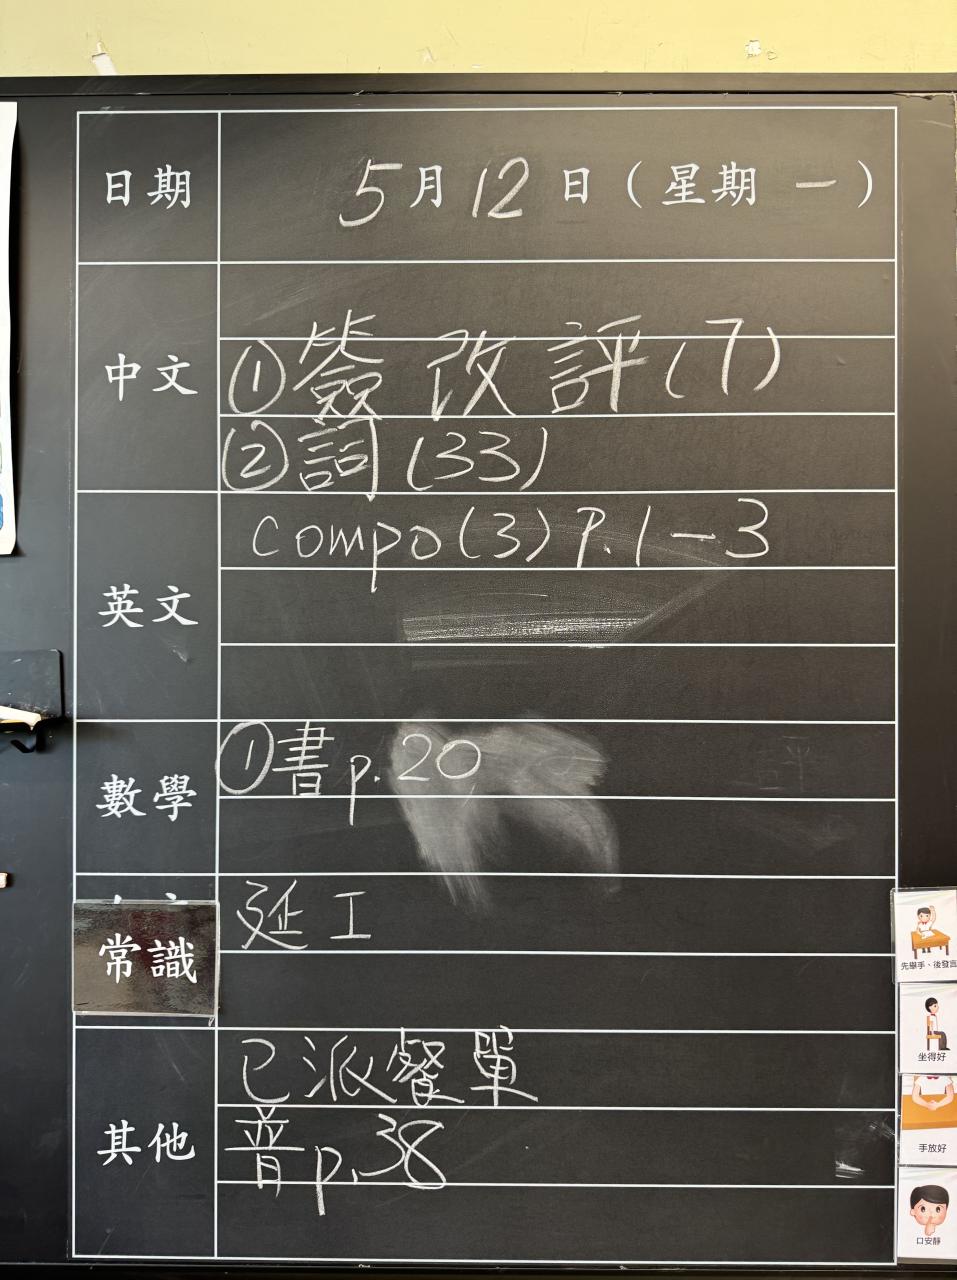 日期 5月12日(星期一)
中文
①簽改評(7)
②詞(33)
英文
compo(3) P.1-3
數學
①書p.20
常識
延工
其他
已派餐單
普p.38
先舉手、後發言
坐得好
手放好
口安靜